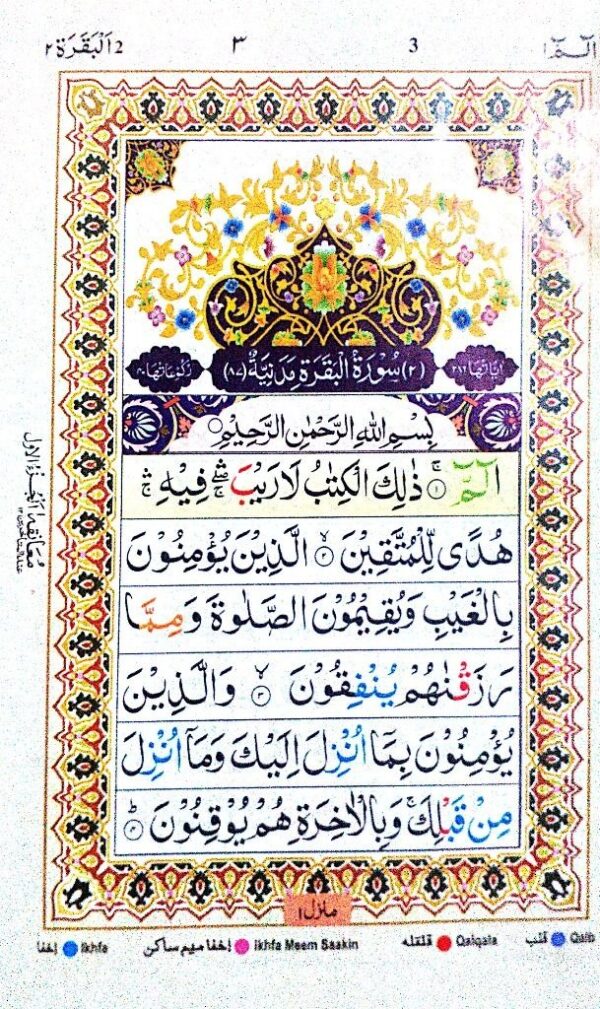 الٓمّٓ ١ 3 ٣ 2 اَلْبَقَرَة ٢
اٰيَاتُهَا ٢٨٦ (٢) سُوْرَةُ الْبَقَرَةِ مَدَنِيَّةٌ (٨٧) رُكُوْعَاتُهَا ٤٠
بِسْمِ اللّٰهِ الرَّحْمٰنِ الرَّحِيْمِ
الٓمّٓ ۚ ١ ذٰلِكَ الْكِتٰبُ لَا رَيْبَ ۛۖۚ فِيْهِ ۛۚ
هُدًى لِّلْمُتَّقِيْنَ ۙ ٢ الَّذِيْنَ يُؤْمِنُوْنَ
بِالْغَيْبِ وَيُقِيْمُوْنَ الصَّلٰوةَ وَمِمَّا
رَزَقْنٰهُمْ يُنْفِقُوْنَ ۙ ٣ وَالَّذِيْنَ
يُؤْمِنُوْنَ بِمَآ اُنْزِلَ اِلَيْكَ وَمَآ اُنْزِلَ
مِنْ قَبْلِكَ ۚ وَبِالْاٰخِرَةِ هُمْ يُوْقِنُوْنَ ؕ ٤
معانقه ١
منزل ١
قلب Qalb قلقله Qalqala اِخفا میم ساکن Ikhfa Meem Saakin اِخفا Ikhfa